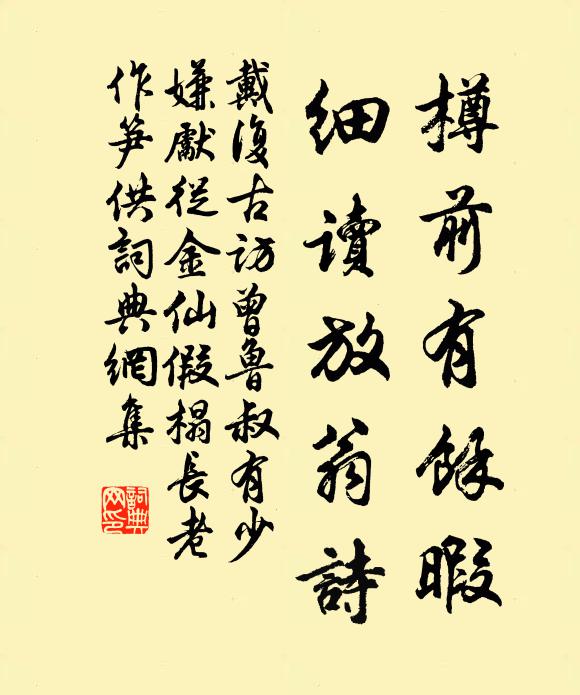 樽前有餘暇
細讀放翁詩
戴復古訪曾魯叔有少
嫌獻從金仙假榻長老
作笋供詞典網集
詞典网印